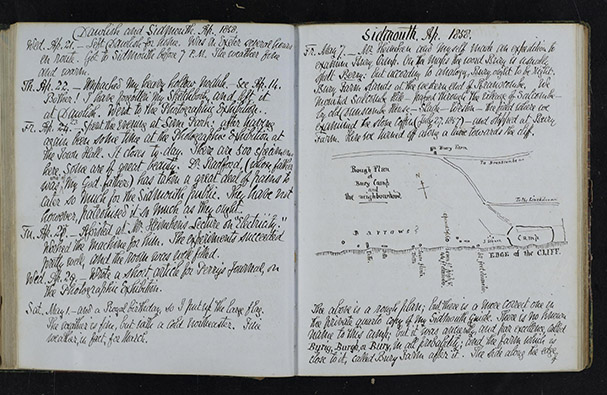 Dawlish and Sidmouth, Ap. 1858.
Wed. Ap. 21. – Left Dawlish for home. Was in Exeter several hours
en route. Got to Sidmouth before 7 P.M. The weather fine
and warm.
Th. Ap. 22. – Unpacked my heavy hollow nodule. – See Ap. 14.
Bother! I have forgotten my and left it
at Dawlish. Went to the Photographic Exhibition.
Fr. Ap. 23. – Spent the evening at Park; after having
again been some time at the Photographic Exhibition at
the Town Hall. It closes to-day. There are 300 specimens
here. Some are of great beauty. Dr. Radford, (whose father
was my God father) has taken a great deal of pains to
cater so much for the Sidmouth public. They have not
however, patronised it so much as they ought.
Assisted at Mr. Heineken's Lecture on "Electricity."
Worked the machine for him. The experiments succeeded
pretty well, and the room was well filled.
Wed. Ap. 28. – Wrote a short article for Perry's Journal, on
the Photographic Exhibition.
Sat. May 1. – and a Royal birthday, so I put up the large flag.
The weather is fine, but with a cold northeaster. Fine
weather, in fact, for March.
Sidmouth. Ap. 1858.
Fr. May 7. – Mr. Heineken and myself made an expedition to
examine Bury Camp. On the maps the word Bury is usually
spelt Berry: but according to analogy, Bury ought to be right.
Bury Farm stands at the western end of Branscombe. We
mounted Salcombe Hill – passed through the village of Salcombe –
by – the field where we
examined the stone coffin (July 27, 1857) – and stopped at Bury
Farm. Here we turned off along a lane towards the cliff.
Bury Farm
To Branscombe
Rough Plan
of
Bury Camp
and
the neighbourhood
N
To Branscombe
Barrows
Camp
EDGE of the CLIFF
The above is a rough plan, but there is a more correct one in
the private quarto copy of my Sidmouth Guide. There is no known
name to this camp; but it was anciently, and par excellence, called
Byrig, Burgh, or Bury, in all probability; and the farm which is
close to it, called Bury Farm after it. The side along the edge